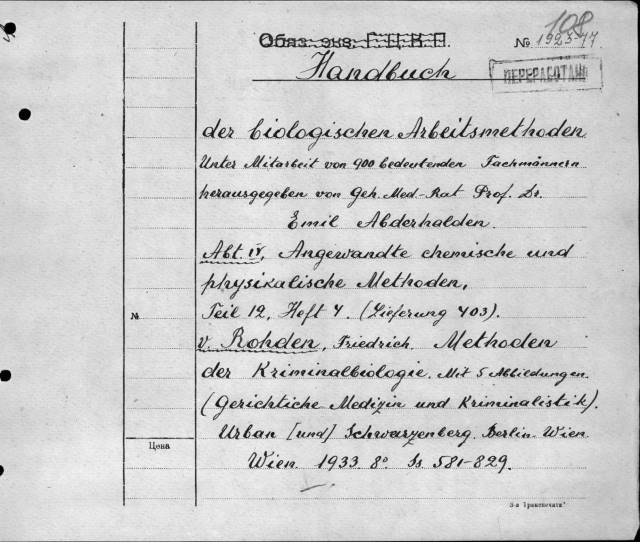 108
Обяз. экз. Г.Ц.К.П.
№ 1923-77
Handbuch
ПЕРЕРАБОТАНО
der biologischen Arbeitsmethoden
Unter Mitarbeit von 900 bedeutenden Fachmännern
herausgegeben von Geh. Med.-Rat Prof. Dr.
Emil Abderhalden.
Abt. IV, Angewandte chemische und
physikalische Methoden,
№ Teil 12, Heft 4. (Lieferung 403).
v. Rohden, Friedrich. Methoden
der Kriminalbiologie. Mit 5 Abbildungen.
(Gerichtliche Medizin und Kriminalistik).
Urban [und] Schwarzenberg. Berlin. Wien.
Цена
Wien 1933. 8º. Ss. 581-829.
3-я "Транспечати"